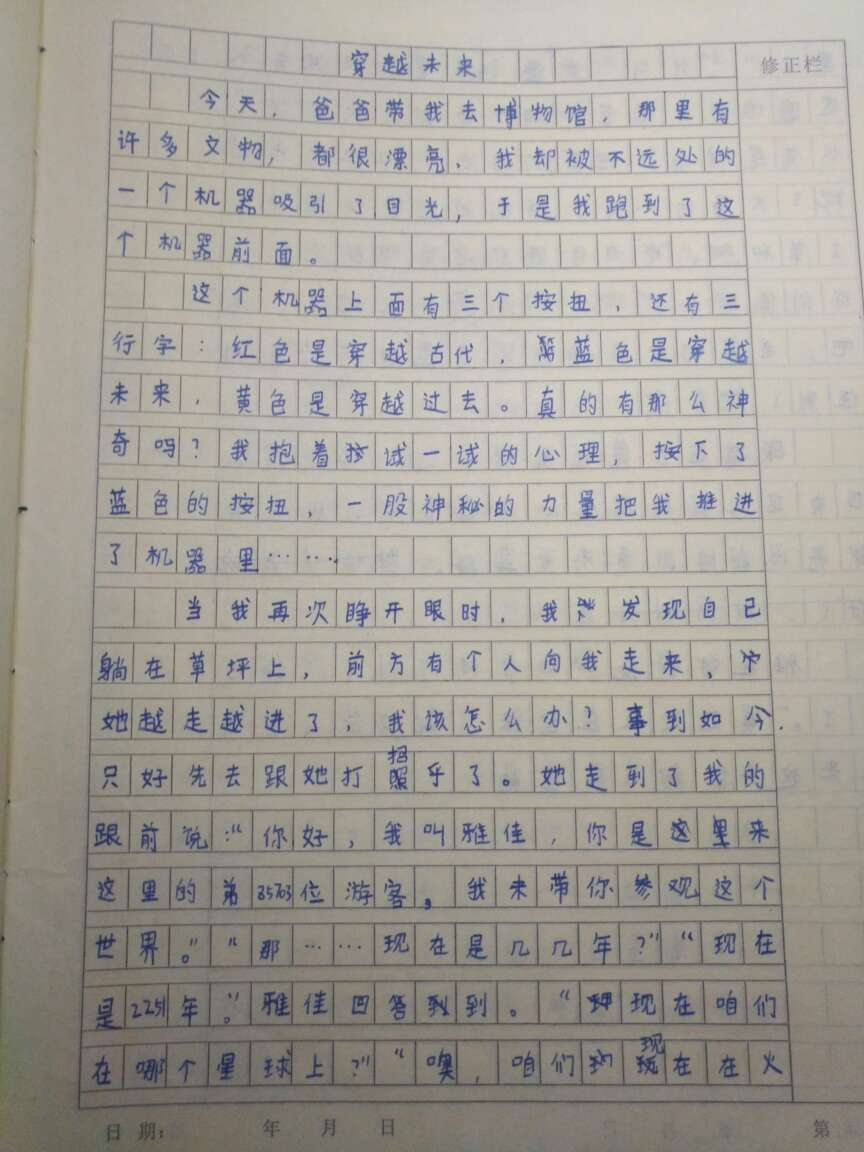 穿越未来
修正栏
今天，爸爸带我去博物馆，那里有
许多文物，都很漂亮，我却被不远处的
一个机器吸引了目光，于是我跑到了这
个机器前面。
这个机器上面有三个按扭，还有三
行字：红色是穿越古代，蓝色是穿越
未来，黄色是穿越过去。真的有那么神
奇吗？我抱着试一试的心理，按下了
蓝色的按扭，一股神秘的力量把我推进
了机器里……
当我再次睁开眼时，我发现自己
躺在草坪上，前方有个人向我走来，
她越走越进了，我该怎么办？事到如今，
只好先去跟她打招乎了。她走到了我的
跟前说：“你好，我叫雅佳，你是这里来
这里的第35703位游客，我来带你参观这个
世界。”“那……现在是几几年？”“现在
是2251年。”雅佳回答到。“现在咱们
在哪个星球上？”“噢，咱们现在在火
日期： 年 月 日 第